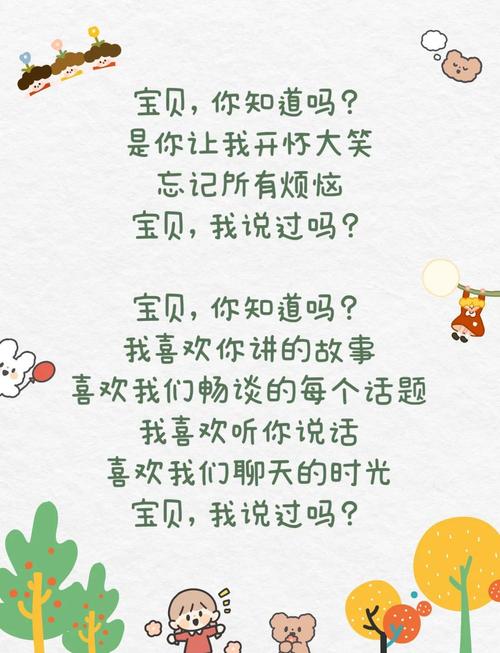 宝贝，你知道吗？
是你让我开怀大笑
忘记所有烦恼
宝贝，我说过吗？
宝贝，你知道吗？
我喜欢你讲的故事
喜欢我们畅谈的每个话题
我喜欢听你说话
喜欢我们聊天的时光
宝贝，我说过吗？